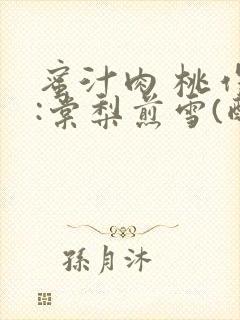 蜜汁肉桃作
:棠梨煎雪(醉
孫月沐